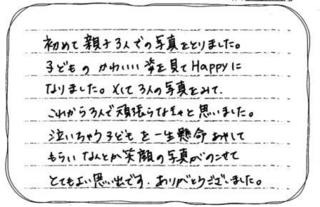 初めて親子3人での写真をとりました。
子どものかわいい姿を見てHappyに
なりました。そして3人の写真をみて、
これから3人で頑張らなきゃと思いました。
泣いちゃう子どもを一生懸命あやして
もらいなんとか笑顔の写真がのこせて
とてもよい思い出です。ありがとうございました。